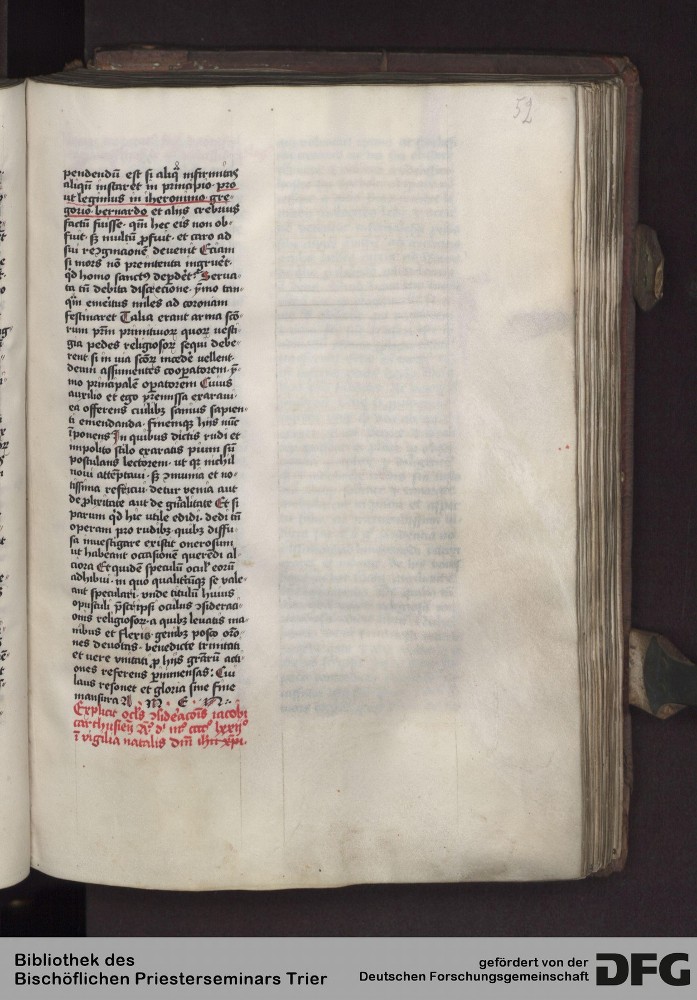 52
pendendū est si aliqͦ infirmitas
aliquā instaret in principio. pro
ut legimus in iheronimo. gre-
gorio. bernardo et alijs crebrius
factū fuisse. qm̄ hec eis non ob-
fuit. sꝫ multū ꝓfuit. et caro ad
sui recognicionē devenit Eciam
si mors nō premtenta ingruēt.
qd̄ homo sanctꝰ depdēt. Serua-
ta tn̄ debita discrecione. ymo tan-
qm̄ emeritus miles ad coronam
festinaret Talia erant arma scō-
rum prm̄ primitiuoꝝ quoꝝ uesti-
gia pedes religiosoꝝ sequi debe-
rent si in via scōꝝ incedē vellent.
demū assumentes cooperatorem. y-
mo principalē opatorem Cuius
auxilio et ego p̄missa exaraui.
ea offerens cuilibꝫ sanius sapien-
ti emendanda. finemqꝫ hijs nūc
īponens In quibus dictis rudi et
impolito stilo exaratis pium sū
postulans lectorem. ut qꝛ nichil
noui attēptaui. sꝫ ꝯmunia et no-
tissima refricui. detur venia aut
de plūritate aut de gn̄alitate Et si
parum qd̄ hic utile edidi. dedi tn̄
operam pro rudibꝫ. quibꝫ diffu-
sa inuestigare existit onerosum
ut habeant occasionē querēdi al-
ciora Et quidē speculū oculꝭ eorū
adhibui. in quo qualitēcūqꝫ se vale-
ant speculari. vnde titulū huius
opusculi p̄scripsi oculus ꝯsideraci-
onis religiosoꝝ. a quibꝫ leuatis ma-
nibus et flexis genibꝫ posco orō-
nes deuotas. benedicte trinitati
et vere vnitati ꝓ hijs grārū acti-
ones referens pimmensas: Cui
laus resonet et gloria sine fine
mansura A . M . E . N .
Explicit oclꝰs ꝯsideracōis iacobi
carthusien̄ Aᵒ dⁱ mᵒ ccccᵒ lxxijᵒ
ī vigilia natalis dn̄i ihū xp̄i.
Bibliothek des
Bischöflichen Priesterseminars Trier
gefördert von der
Deutschen Forschungsgemeinschaft
DFG